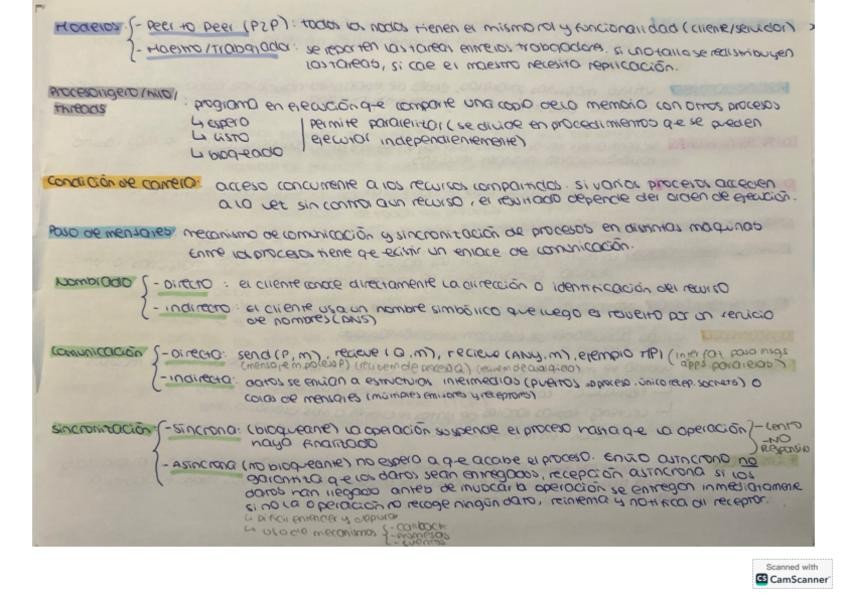 Modelos - Peer to Peer (P2P): todos los nodos tienen el mismo rol y funcionalidad (cliente/servidor)
- Maestro/Trabajador: se reparten las tareas entre los trabajadores. si uno falla se redistribuyen
las tareas, si cae el maestro necesita replicación.
Proceso ligero/hilo/
threads : programa en ejecución qe comparte una copia de la memoria con otros procesos
↳ espera
↳ listo
↳ bloqueado
permite paralelizar (se divide en procedimientos que se pueden
ejecutar independientemente)
Condición de carrera: acceso concurrente a los recursos compartidos. si varios procesos acceden
a la vez sin control a un recurso, el resultado depende del orden de ejecución.
Paso de mensajes: mecanismo de comunicación y sincronización de procesos en distintas maquinas
Entre los procesos tiene qe existir un enlace de comunicación.
Nombrado - Directo : el cliente conoce directamente la dirección o identificación del recurso
- indirecto : el cliente usa un nombre simbólico que luego es resuelto por un servicio
de nombres (DNS)
Comunicación - Directa: send (P, m), recieve (Q, m), recieve (ANY, m), ejemplo MPI (interfaz paso msgs
apps paralelas)
- indirecta: datos se envían a estructuras intermedias (puertos → proceso único recep. sockets) o
colas de mensajes (múltiples emisores y receptores)
Sincronización - Síncrona: (bloqueante) la operación suspende el proceso hasta qe la operación
haya finalizado
- Lento
- NO
RESPONSIVO
- Asíncrona (no bloqueante) no espera a qe acabe el proceso. Envío asíncrono no
garantiza qe los datos sean entregados, recepción asíncrona si los
datos han llegado antes de invocar la operación se entregan inmediatamente
si no la operación no recoge ningún dato, reintenta y notifica al receptor.
↳ dificil entender y depurar
↳ uso de mecanismos - callback
- promesas
- eventos
Scanned with
CS CamScanner